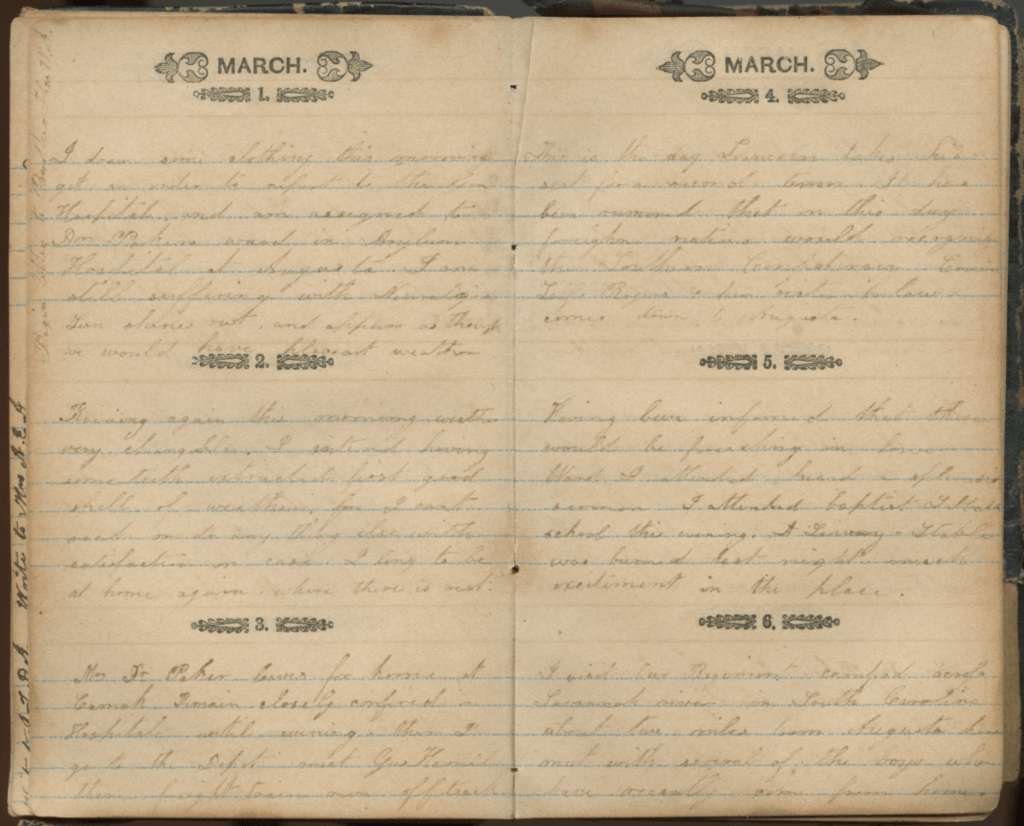 MARCH.
1.
I draw some clothing this morning
get an order to report to the
Hospital, and am assigned to
ward in Asylum
Hospital at Augusta I am
still suffering with Neuralgia
Sun shines out, and appears as though
we would have pleasant weather
2.
Raining again this morning weather
very changable. I intend having
some teeth extracted first good
spell of weather, for I cant
read or do any thing else with
satisfaction or ease. I long to be
at home again where there is rest.
3.
Mrs Dr leaves for home at
Camak. Remain closely confined in
Hospital until evening then I
go to the Depot meet Gus
there, freight train run off track
MARCH.
4.
This is the day Lincoln takes his
seat for a second term. It has
been rumored that on this day
nations would recognize
the Southern Confederacy
Rogers & her in law
comes down to Augusta.
5.
Having been informed that there
would be preaching in
Ward I attended, heard a splendid
sermon I attended baptist Sabbath
school this evening. A Livery Stable
was burned last night much
excitement in the place.
6.
I visit our Regiment camped across
Savannah river in South Carolina
about two miles from Augusta
met with several of the boys who
have recently come from home.
Write to Mrs A.E.A